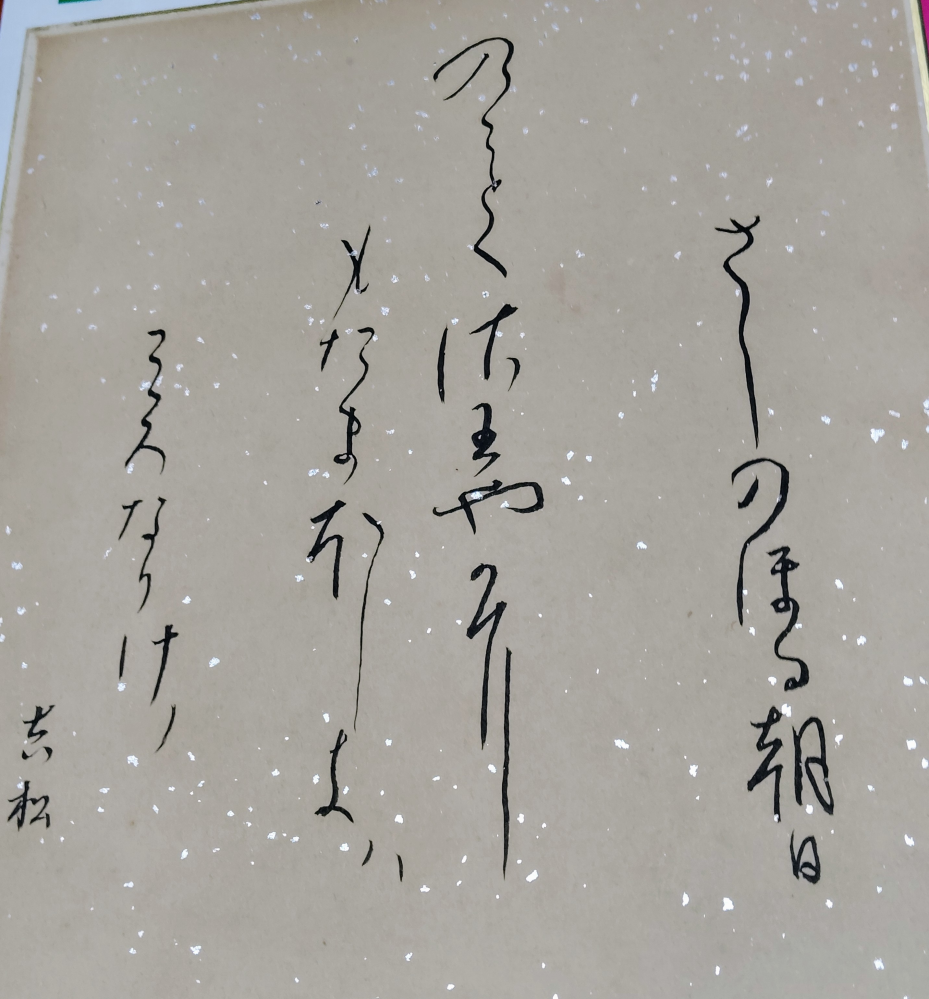 さしのほる朝日
のことくさわやかに
もたまほしきハ
こゝろなりけり
吉松